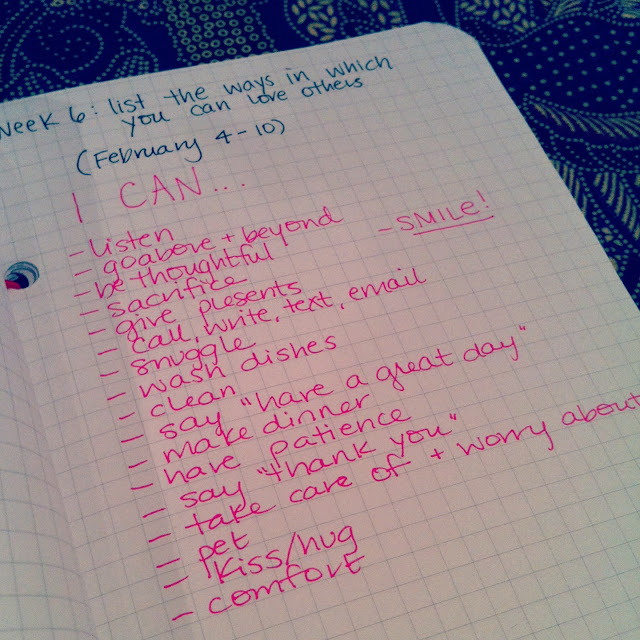 Week 6: list the ways in which
you can love others
(February 4-10)
I CAN...
- Listen
- go above + beyond
- be thoughtful
- SMILE!
- sacrifice
- give presents
- call, write, text, email
- snuggle
- wash dishes
- clean
- say "have a great day"
- make dinner
- have patience
- say "thank you"
- take care of + worry about
- pet
- kiss/hug
- comfort